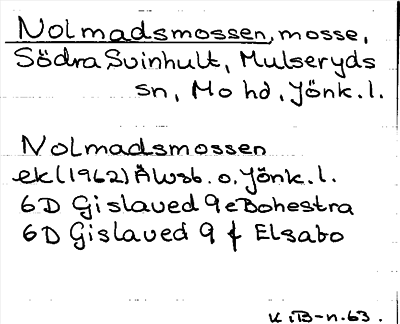 Nolmadsmossen, mosse,
Södra Svinhult, Mulseryds
sn, Mo hd, Jönk.l.
Nolmadsmossen
ek (1962) Älvsb. o. Jönk.l.
6D Gislaved 9e Bohestra
6D Gislaved 9 f Elsabo
K.iB-n.63.